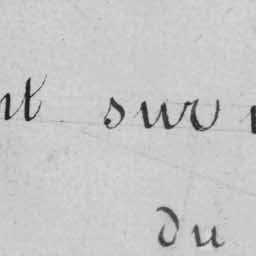 nt sur
du